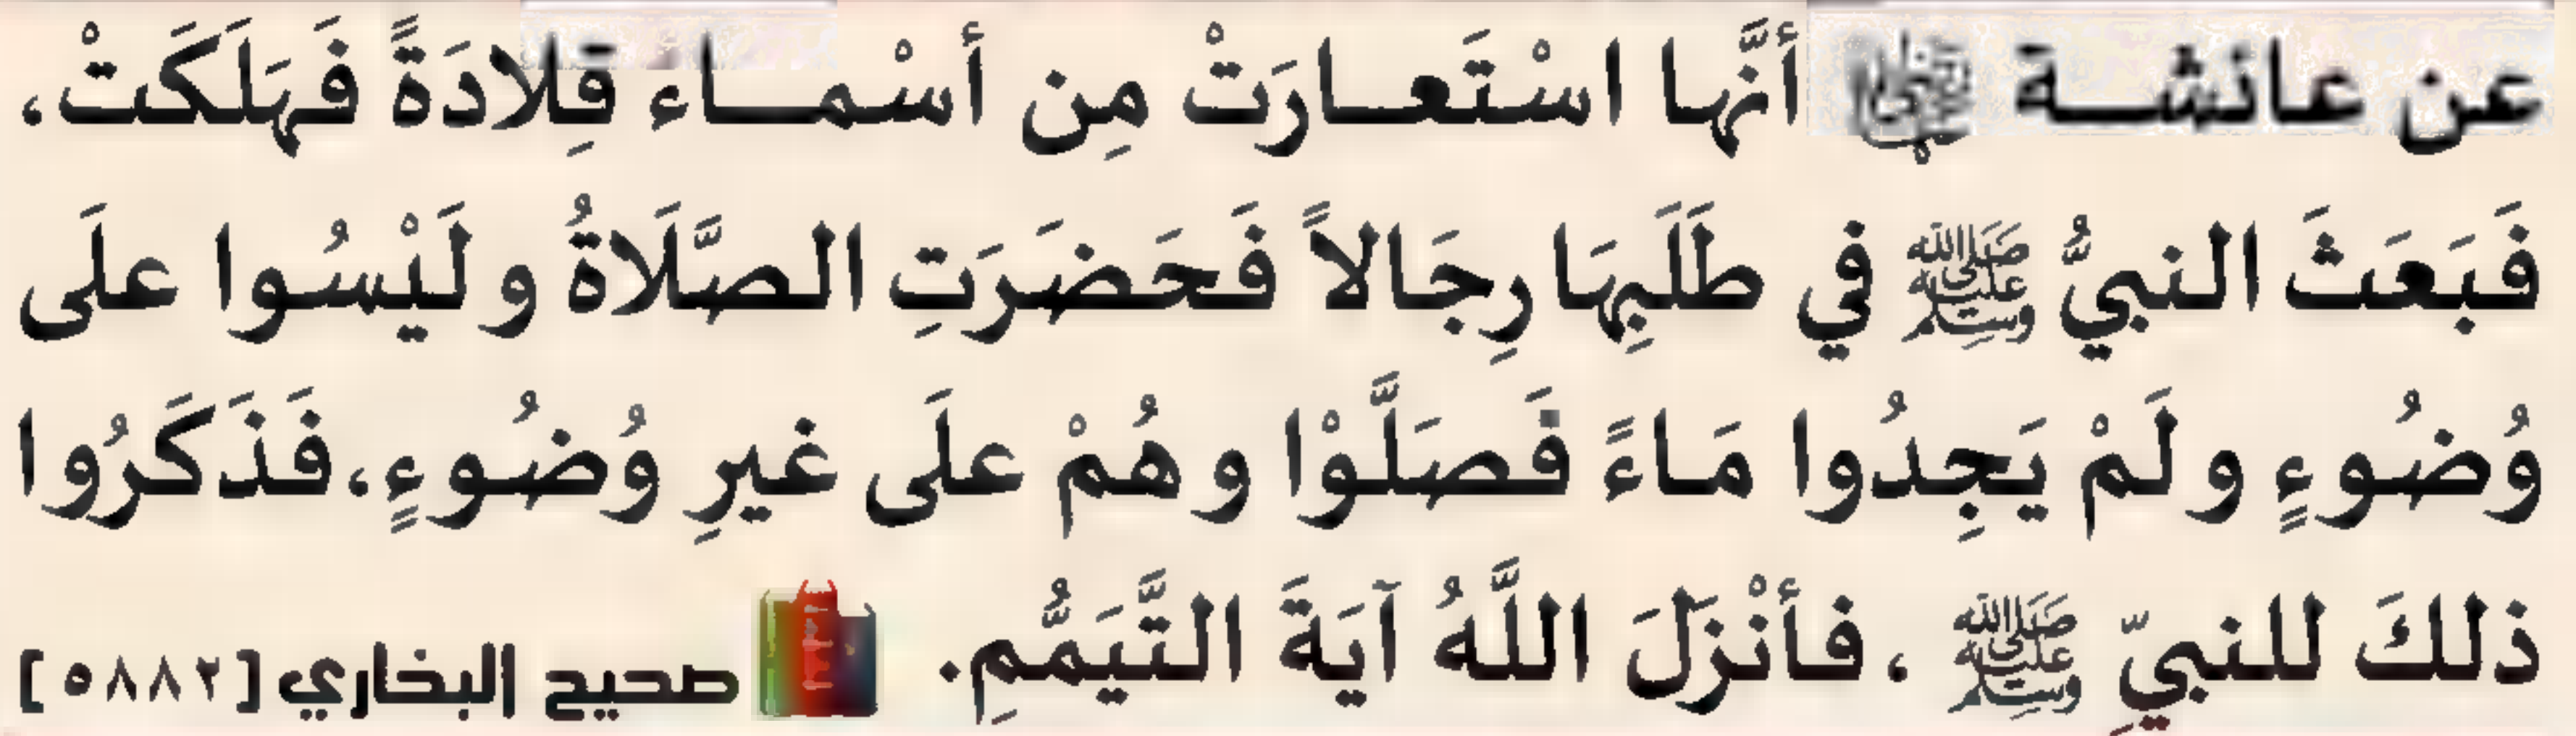 عن عائشة ﵂ أنَّها اسْتَعارَتْ مِن أسْماء قِلادَةً فَهَلَكَتْ،
فَبَعَثَ النبيُّ ﷺ في طَلَبِهَا رِجَالاً فَحَضَرَتِ الصَّلَاةُ و لَيْسُوا علَى
وُضُوءٍ و لَمْ يَجِدُوا مَاءً فَصَلَّوْا و هُمْ علَى غيرِ وُضُوءٍ، فَذَكَرُوا
ذلكَ للنبيِّ ﷺ ، فأنْزَلَ اللَّهُ آيَةَ التَّيَمُّمِ. صحيح البخاري [٥٨٨٢]